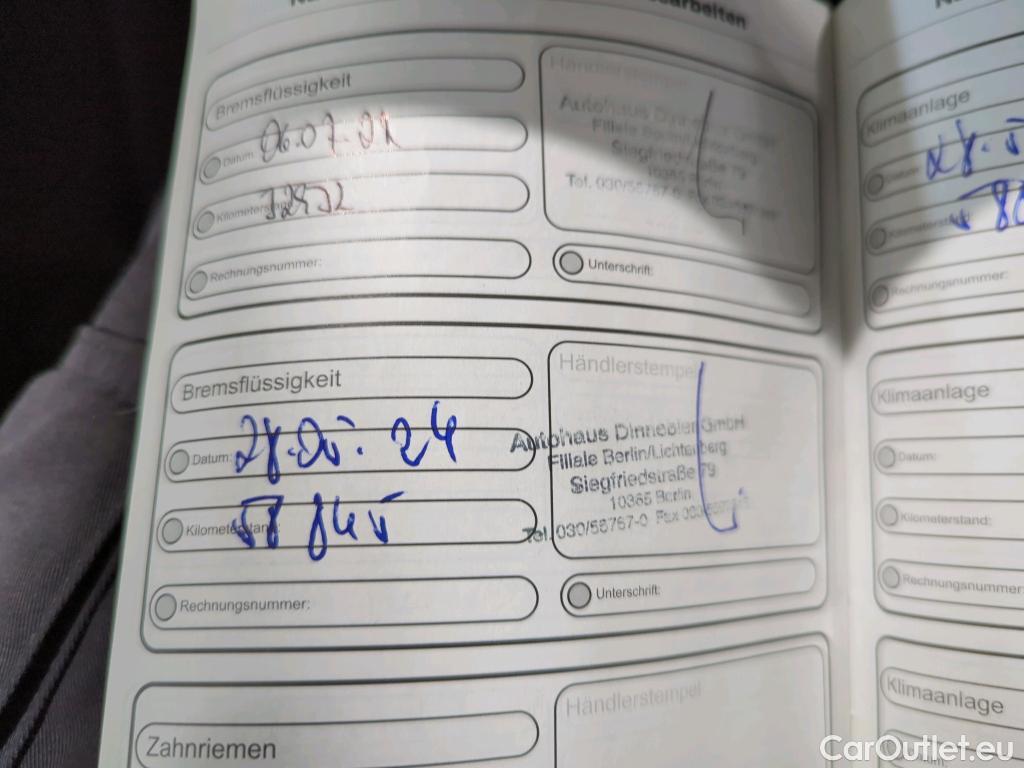 Bremsflüssigkeit
Datum:
Kilometerstand:
Rechnungsnummer:
Händlerstempel
Autohaus Dinnebier GmbH
Filiale Berlin/Lichtenberg
Siegfriedstraße 79
10365 Berlin
Tel. 030/55767-0
Unterschrift:
Klimaanlage
Datum:
Kilometerstand:
Rechnungsnummer:
Bremsflüssigkeit
Datum: 28.05.24
Kilometerstand: 58 845
Rechnungsnummer:
Händlerstempel
Autohaus Dinnebier GmbH
Filiale Berlin/Lichtenberg
Siegfriedstraße 79
10365 Berlin
Tel. 030/55767-0 Fax
Unterschrift:
Klimaanlage
Datum:
Kilometerstand:
Rechnungsnummer:
Zahnriemen
Händlerstempel
Klimaanlage
CarOutlet.eu